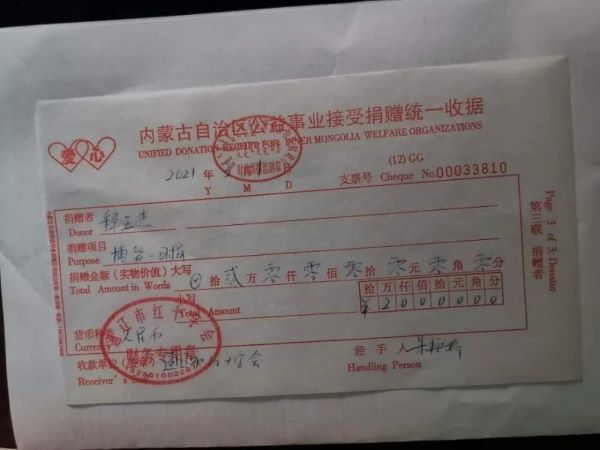 爱心
内蒙古自治区公益事业接受捐赠统一收据
UNIFIED DONATION RECEIPT FOR INNER MONGOLIA WELFARE ORGANIZATIONS
(12) GG
2021 年 月 日 支票号 Cheque No.00033810
Y M D
捐赠者
Donor
捐赠项目
Purpose 一日捐
捐赠金额(实物价值)大写 ⊗ 拾 贰 万 零 仟 零 佰 零 拾 零 元 零 角 零 分
Total Amount in Words
小写 拾 万 仟 佰 拾 元 角 分
Total Amount ¥ 2 0 0 0 0 0 0
货币种类 人民币
Currency
通辽市红十字会
财务专用章
收款单位(签章) 通辽市红十字会 经手人
Receiver's Handling Person
Page 3 of 3: Donator
第三联 捐赠者